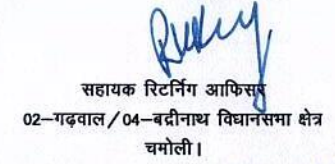 सहायक रिटर्निंग आफिसर
02–गढ़वाल/04–बद्रीनाथ विधानसभा क्षेत्र
चमोली।